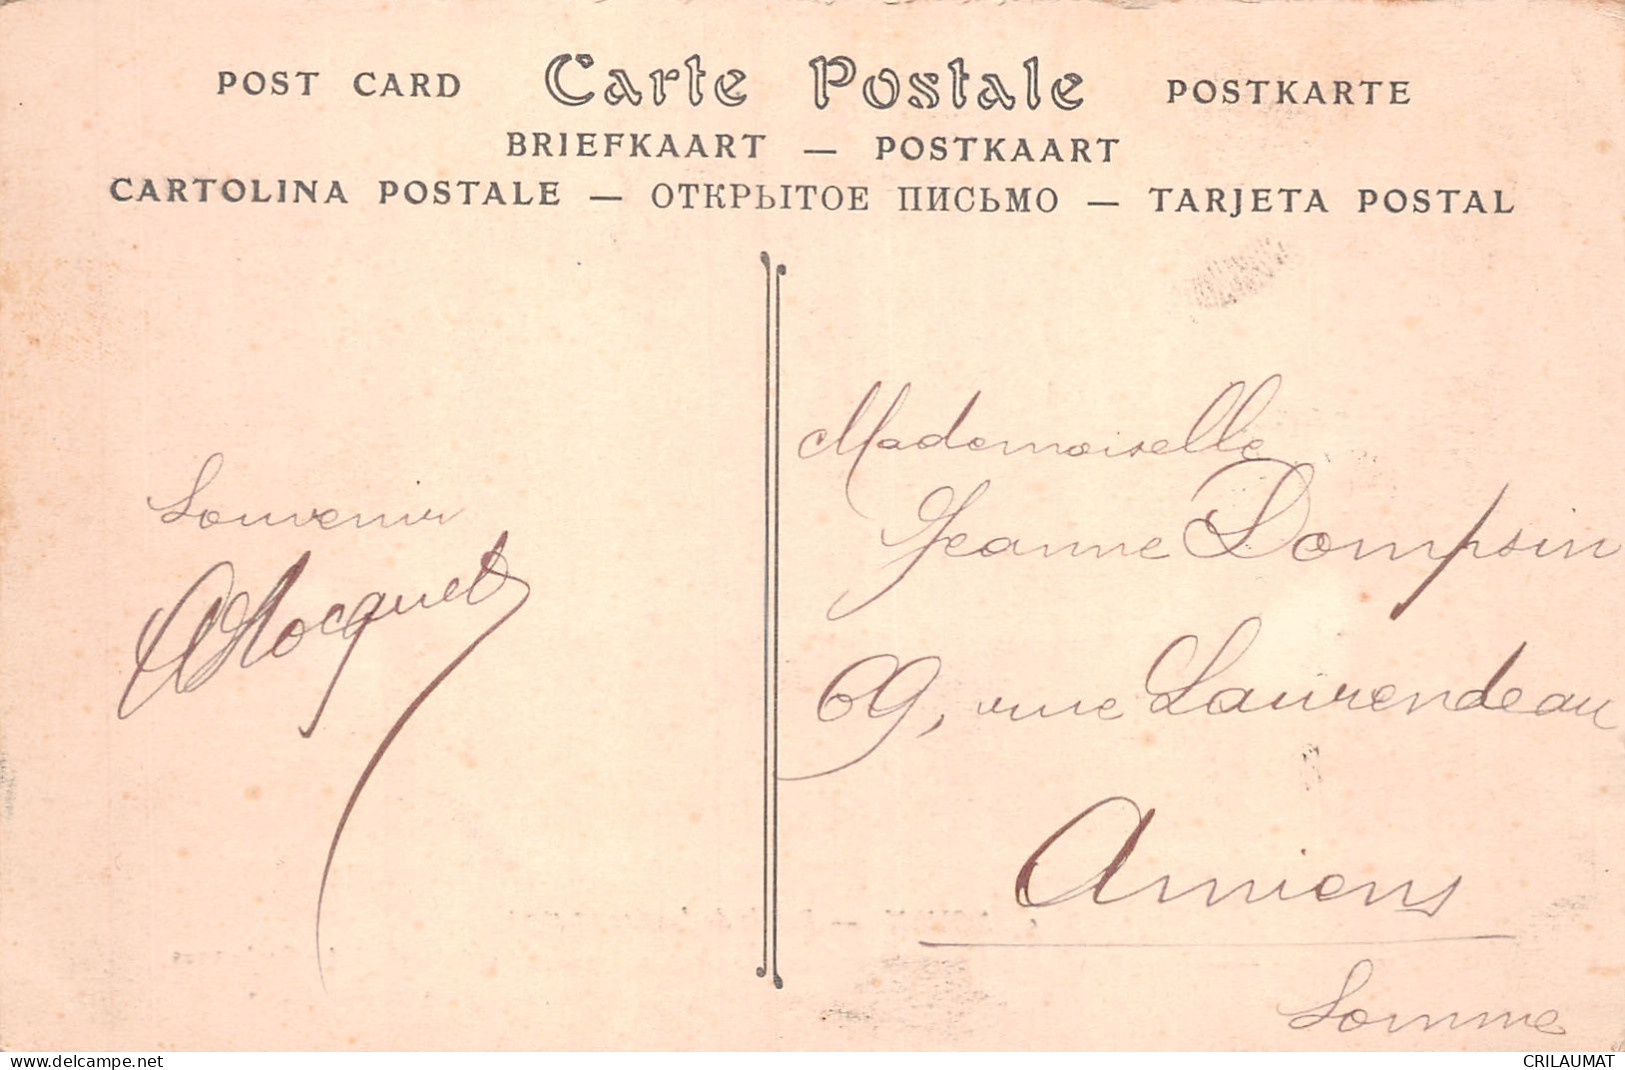 POST CARD Carte Postale POSTKARTE
BRIEFKAART — POSTKAART
CARTOLINA POSTALE — ОТКРЫТОЕ ПИСЬМО — TARJETA POSTAL
Souvenir
Hocquet
Mademoiselle
Jeanne Dompsin
69, rue Laurendeau
Amiens
Somme
www.delcampe.net
CRILAUMAT